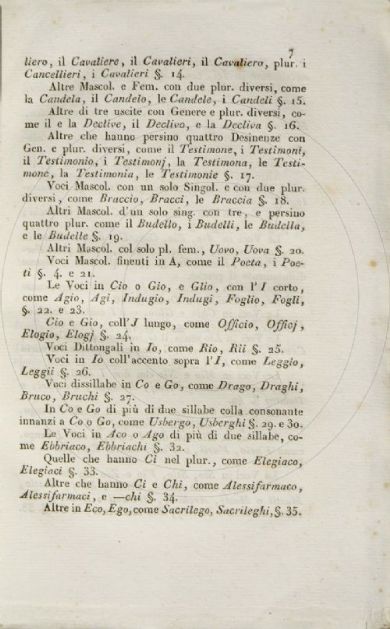 7
liero, il Cavaliere, il Cavalieri, il Cavaliero, plur. i
Cancellieri, i Cavalieri §. 14.
Altre Mascol. e Fem. con due plur. diversi, come
la Candela, il Candelo, le Candele, i Candeli §. 15.
Altre di tre uscite con Genere e plur. diversi, co-
me il e la Declive, il Declivo, e la Decliva §. 16.
Altre che hanno persino quattro Desinenze con
Gen. e plur. diversi, come il Testimone, i Testimoni,
il Testimonio, i Testimonj, la Testimona, le Testi-
mone, la Testimonia, le Testimonie §. 17.
Voci Mascol. con un solo Singol. e con due plur.
diversi, come Braccio, Bracci, le Braccia §. 18.
Altri Mascol. d'un solo sing. con tre, e persino
quattro plur. come il Budello, i Budelli, le Budella,
e le Budelle §. 19.
Altri Mascol. col solo pl. fem., Uovo, Uova §. 20.
Voci Mascol. finenti in A, come il Poeta, i Poe-
ti §. 4. e 21.
Le Voci in Cio o Gio, e Glio, con l'I corto,
come Agio, Agi, Indugio, Indugi, Foglio, Fogli,
§. 22. e 23.
Cio e Gio, coll'J lungo, come Officio, Officj,
Elogio, Elogj §. 24.
Voci Dittongali in Io, come Rio, Rii §. 25.
Voci in Io coll'accento sopra l'I, come Leggìo,
Leggii §. 26.
Voci dissillabe in Co e Go, come Drago, Draghi,
Bruco, Bruchi §. 27.
In Co e Go di più di due sillabe colla consonante
innanzi a Co o Go, come Usbergo, Usberghi §. 29. e 30.
Le Voci in Aco o Ago di più di due sillabe, co-
me Ebbriaco, Ebbriachi §. 32.
Quelle che hanno Ci nel plur., come Elegiaco,
Elegiaci §. 33.
Altre che hanno Ci e Chi, come Alessifarmaco,
Alessifarmaci, e —chi §. 34.
Altre in Eco, Ego, come Sacrilego, Sacrileghi, §. 35.